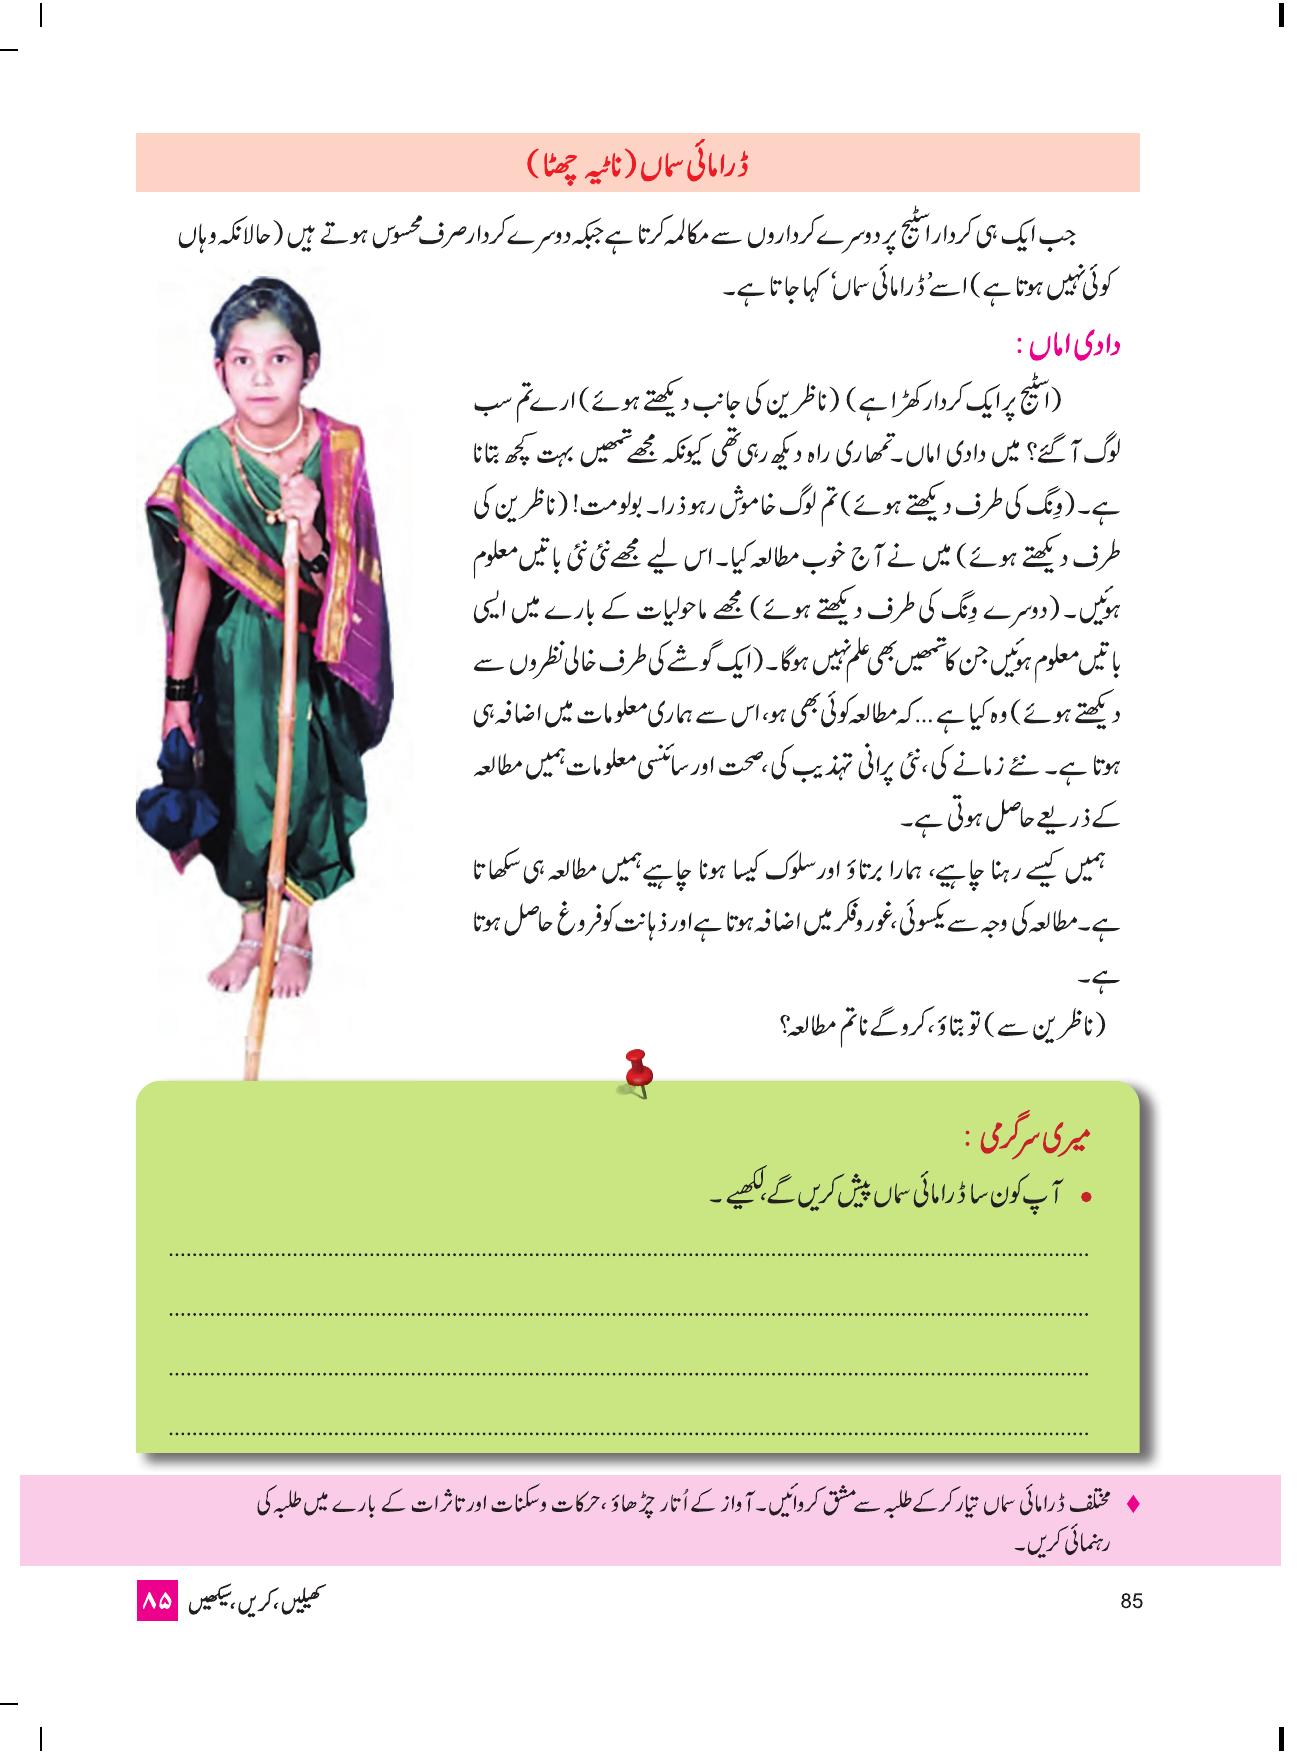 ڈرامائی سماں (ناٹیہ چھٹا)
جب ایک ہی کردار اسٹیج پر دوسرے کرداروں سے مکالمہ کرتا ہے جبکہ دوسرے کردار صرف محسوس ہوتے ہیں (حالانکہ وہاں
کوئی نہیں ہوتا ہے) اسے ’ڈرامائی سماں‘ کہا جاتا ہے۔
دادی اماں :
(اسٹیج پر ایک کردار کھڑا ہے) (ناظرین کی جانب دیکھتے ہوئے) ارے تم سب
لوگ آگئے؟ میں دادی اماں۔ تمھاری راہ دیکھ رہی تھی کیونکہ مجھے تمھیں بہت کچھ بتانا
ہے۔ (وِنگ کی طرف دیکھتے ہوئے) تم لوگ خاموش رہو ذرا۔ بولو مت! (ناظرین کی
طرف دیکھتے ہوئے) میں نے آج خوب مطالعہ کیا۔ اس لیے مجھے نئی نئی باتیں معلوم
ہوئیں۔ (دوسرے وِنگ کی طرف دیکھتے ہوئے) مجھے ماحولیات کے بارے میں ایسی
باتیں معلوم ہوئیں جن کا تمھیں بھی علم نہیں ہوگا۔ (ایک گوشے کی طرف خالی نظروں سے
دیکھتے ہوئے) وہ کیا ہے ... کہ مطالعہ کوئی بھی ہو، اس سے ہماری معلومات میں اضافہ ہی
ہوتا ہے۔ نئے زمانے کی، نئی پرانی تہذیب کی، صحت اور سائنسی معلومات ہمیں مطالعہ
کے ذریعے حاصل ہوتی ہے۔
ہمیں کیسے رہنا چاہیے، ہمارا برتاؤ اور سلوک کیسا ہونا چاہیے ہمیں مطالعہ ہی سکھاتا
ہے۔ مطالعہ کی وجہ سے یکسوئی، غور و فکر میں اضافہ ہوتا ہے اور ذہانت کو فروغ حاصل ہوتا
ہے۔
(ناظرین سے) تو بتاؤ، کرو گے نا تم مطالعہ؟
میری سرگرمی :
• آپ کون سا ڈرامائی سماں پیش کریں گے، لکھیے ۔
♦ مختلف ڈرامائی سماں تیار کرکے طلبہ سے مشق کروائیں۔ آواز کے اُتار چڑھاؤ، حرکات و سکنات اور تاثرات کے بارے میں طلبہ کی
رہنمائی کریں۔
85
کھیلیں، کریں، سیکھیں ۸۵